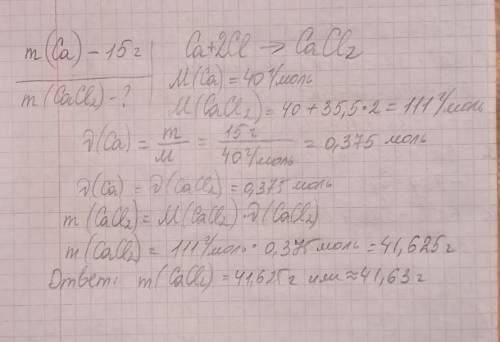 m(Ca) – 15г
m(CaCl₂) – ?
Ca+2Cl → CaCl₂
M(Ca) = 40 г/моль
M(CaCl₂) = 40 + 35,5·2 = 111 г/моль
ν(Ca) = m/M = 15г/40 г/моль = 0,375 моль
ν(Ca) = ν(CaCl₂) = 0,375 моль
m(CaCl₂) = M(CaCl₂)·ν(CaCl₂)
m(CaCl₂) = 111 г/моль · 0,375 моль = 41,625 г
Ответ: m(CaCl₂) = 41,625 г или ≈ 41,63 г